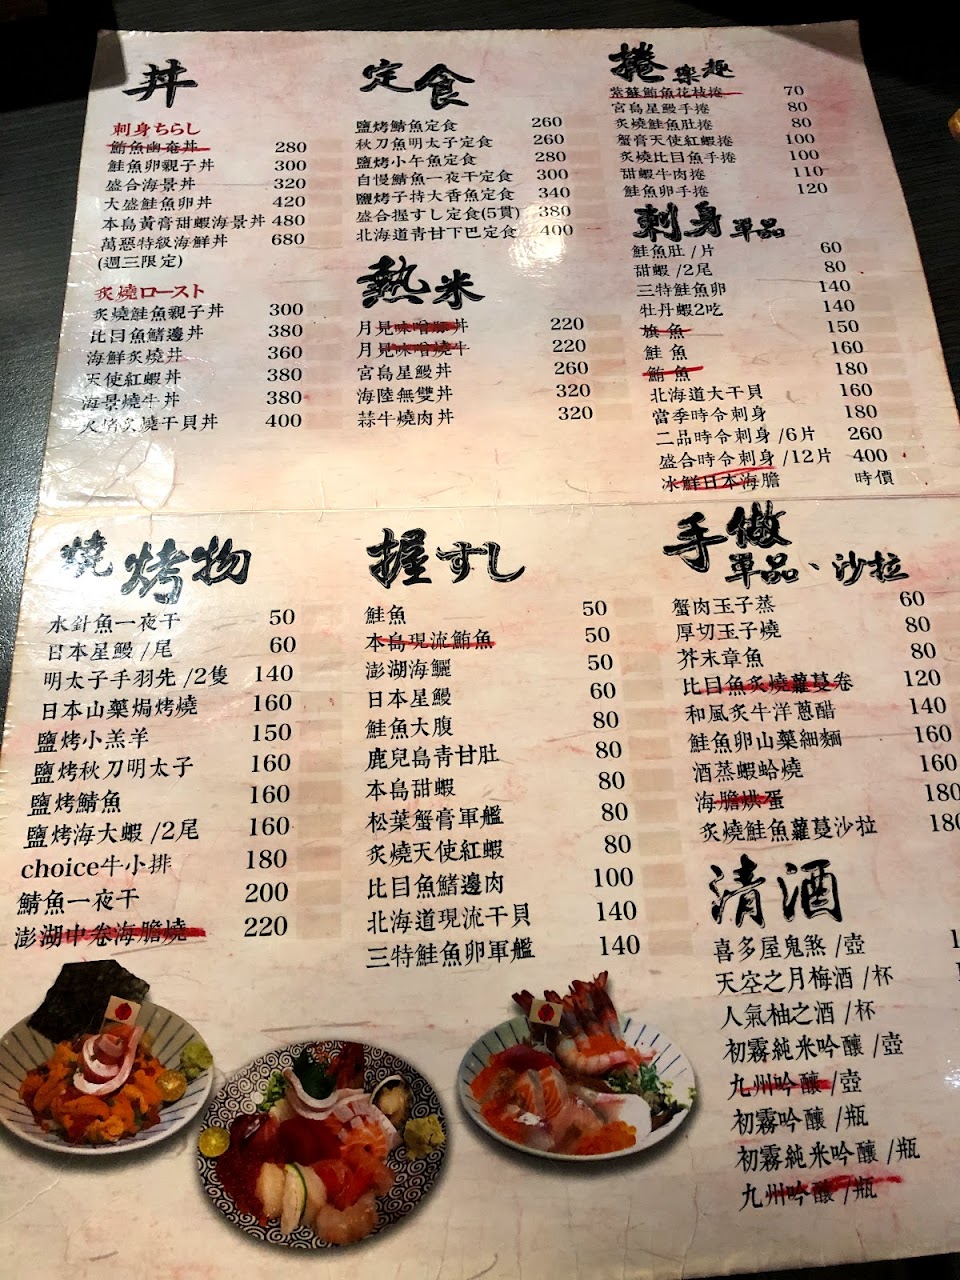 丼
刺身ちらし
鮪魚幽奄丼 280
鮭魚卵親子丼 300
盛合海景丼 320
大盛鮭魚卵丼 420
本島黃膏甜蝦海景丼 480
萬惡特級海鮮丼 680
(週三限定)
炙燒ロースト
炙燒鮭魚親子丼 300
比目魚鰭邊丼 380
海鮮炙燒丼 360
天使紅蝦丼 380
海景燒牛丼 380
火烤炙燒干貝丼 400
定食
鹽烤鯖魚定食 260
秋刀魚明太子定食 260
鹽烤小午魚定食 280
自慢鯖魚一夜干定食 300
鹽烤子持大香魚定食 340
盛合握すし定食(5貫) 380
北海道青甘下巴定食 400
熱米
月見味噌豚丼 220
月見味噌燒牛 220
宮島星鰻丼 260
海陸無雙丼 320
蒜牛燒肉丼 320
捲樂趣
紫蘇鮪魚花枝捲 70
宮島星鰻手捲 80
炙燒鮭魚肚捲 80
蟹膏天使紅蝦捲 100
炙燒比目魚手捲 100
甜蝦牛肉捲 110
鮭魚卵手捲 120
刺身單品
鮭魚肚/片 60
甜蝦/2尾 80
三特鮭魚卵 140
牡丹蝦2吃 140
旗魚 150
鮭魚 160
鮪魚 180
北海道大干貝 160
當季時令刺身 180
二品時令刺身/6片 260
盛合時令刺身/12片 400
冰鮮日本海膽 時價
燒烤物
水針魚一夜干 50
日本星鰻/尾 60
明太子手羽先/2隻 140
日本山藥焗烤燒 160
鹽烤小羔羊 150
鹽烤秋刀明太子 160
鹽烤鯖魚 160
鹽烤海大蝦/2尾 160
choice牛小排 180
鯖魚一夜干 200
澎湖中卷海膽燒 220
握すし
鮭魚 50
本島現流鮪魚 50
澎湖海鱺 50
日本星鰻 60
鮭魚大腹 80
鹿兒島青甘肚 80
本島甜蝦 80
松葉蟹膏軍艦 80
炙燒天使紅蝦 80
比目魚鰭邊肉 100
北海道現流干貝 140
三特鮭魚卵軍艦 140
手做
單品、沙拉
蟹肉玉子蒸 60
厚切玉子燒 80
芥末章魚 80
比目魚炙燒蘿蔓卷 120
和風炙牛洋蔥醋 140
鮭魚卵山藥細麵 160
酒蒸蝦蛤燒 160
海膽烘蛋 180
炙燒鮭魚蘿蔓沙拉 180
清酒
喜多屋鬼煞/壺
天空之月梅酒/杯
人氣柚之酒/杯
初霧純米吟釀/壺
九州吟釀/壺
初霧吟釀/瓶
初霧純米吟釀/瓶
九州吟釀/瓶